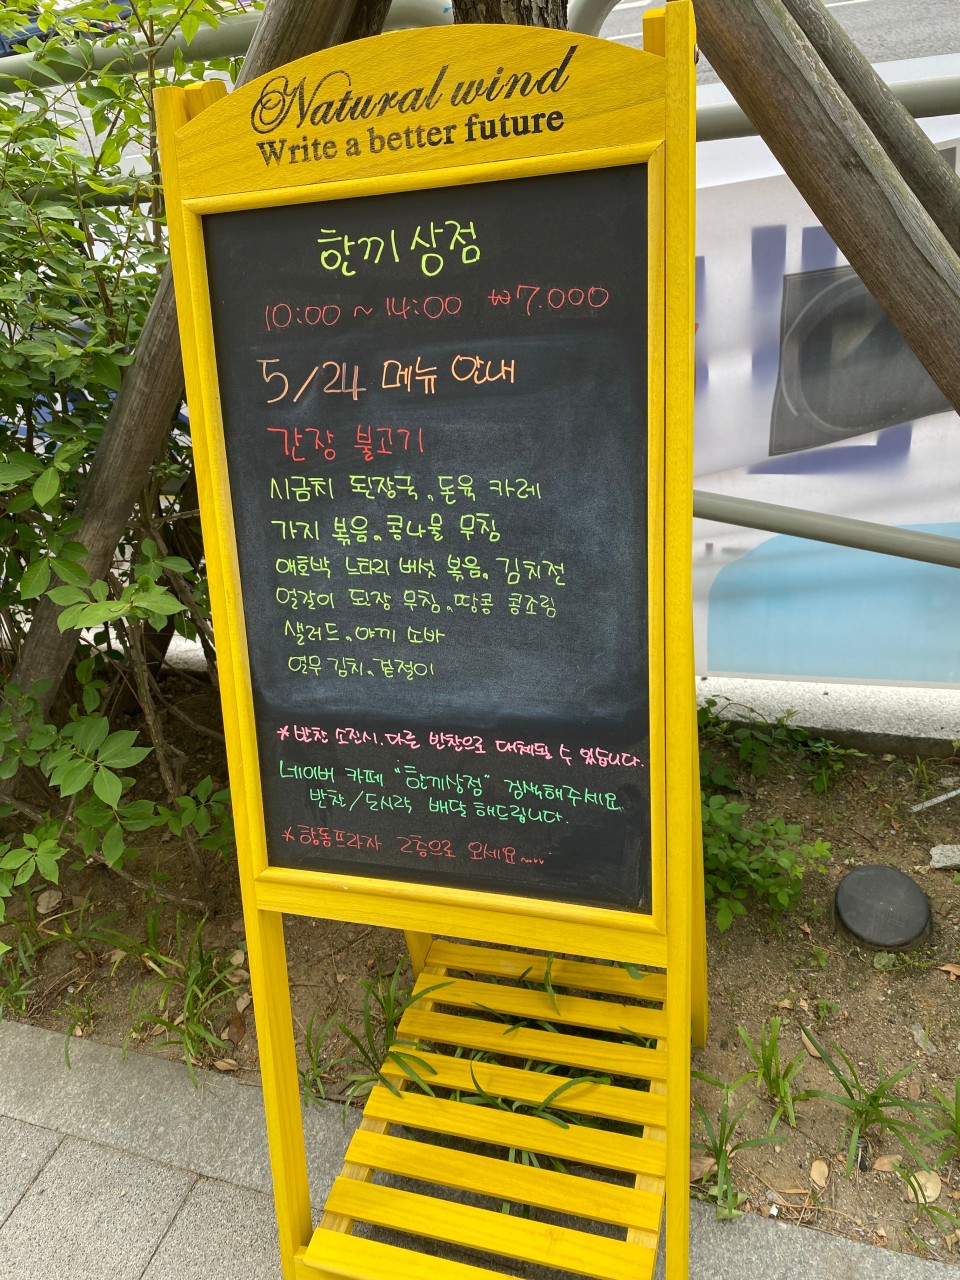 Natural wind
Write a better future
한끼 상점
10:00 ~ 14:00 ₩7.000
5/24 메뉴 안내
간장 불고기
시금치 된장국. 돈육 카레
가지 볶음. 콩나물 무침
애호박 느타리 버섯 볶음. 김치전
얼갈이 된장 무침. 땅콩 콩조림
샐러드. 야끼 소바
열무 김치. 겉절이
* 반찬 소진시. 다른 반찬으로 대체될 수 있습니다.
네이버 카페 "한끼상점" 검색해주세요
반찬/도시락 배달 해드립니다.
* 향동프라자 2층으로 오세요~